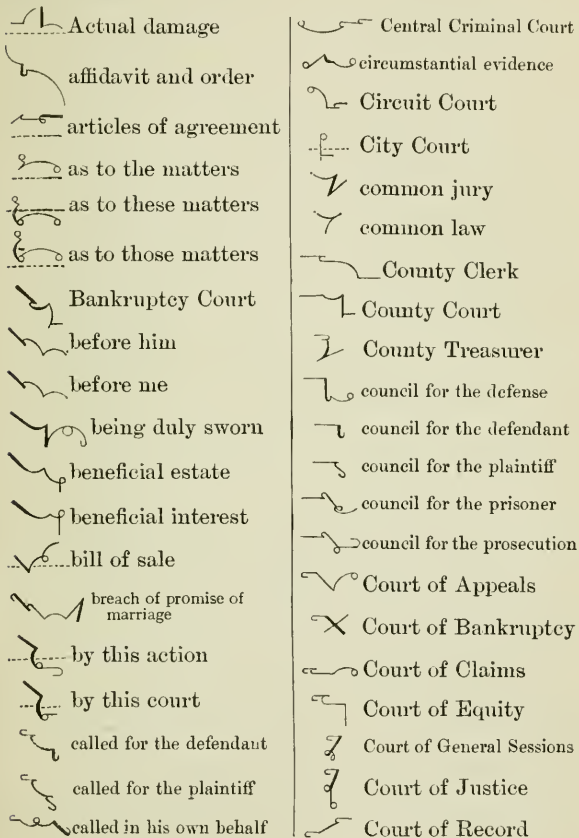 Actual damage
affidavit and order
articles of agreement
as to the matters
as to these matters
as to those matters
Bankruptcy Court
before him
before me
being duly sworn
beneficial estate
beneficial interest
bill of sale
breach of promise of
marriage
by this action
by this court
called for the defendant
called for the plaintiff
called in his own behalf
Central Criminal Court
circumstantial evidence
Circuit Court
City Court
common jury
common law
County Clerk
County Court
County Treasurer
council for the defense
council for the defendant
council for the plaintiff
council for the prisoner
council for the prosecution
Court of Appeals
Court of Bankruptcy
Court of Claims
Court of Equity
Court of General Sessions
Court of Justice
Court of Record